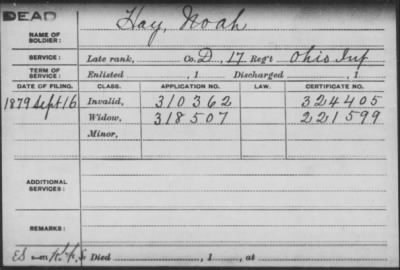 DEAD
Hay, Noah
NAME OF SOLDIER:
SERVICE: Late rank, Co. D, 17 Reg't Ohio Inf
TERM OF SERVICE: Enlisted , 1 Discharged , 1
DATE OF FILING. CLASS. APPLICATION NO. LAW. CERTIFICATE NO.
1879 Sept 16 Invalid, 310362 324405
Widow, 318507 221599
Minor,
ADDITIONAL SERVICES:
REMARKS:
Died , 1 , at